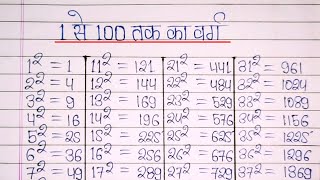 1 से 100 तक का वर्ग
1² = 1 11² = 121 21² = 441 31² = 961
2² = 4 12² = 144 22² = 484 32² = 1024
3² = 9 13² = 169 23² = 529 33² = 1089
4² = 16 14² = 196 24² = 576 34² = 1156
5² = 25 15² = 225 25² = 625 35² = 1225
6² = 36 16² = 256 26² = 676 36² = 1296
7² = 49 17² = 289 27² = 729 37² = 1369